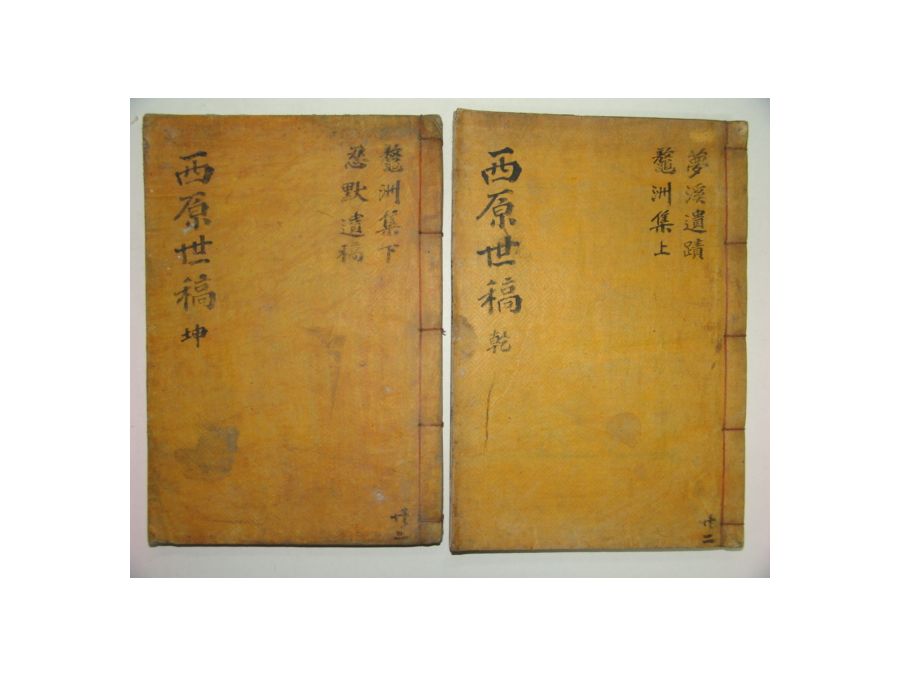 夢溪遺蹟
鼇洲集上
西原世稿 乾
鼇洲集下
忍默遺稿
西原世稿 坤